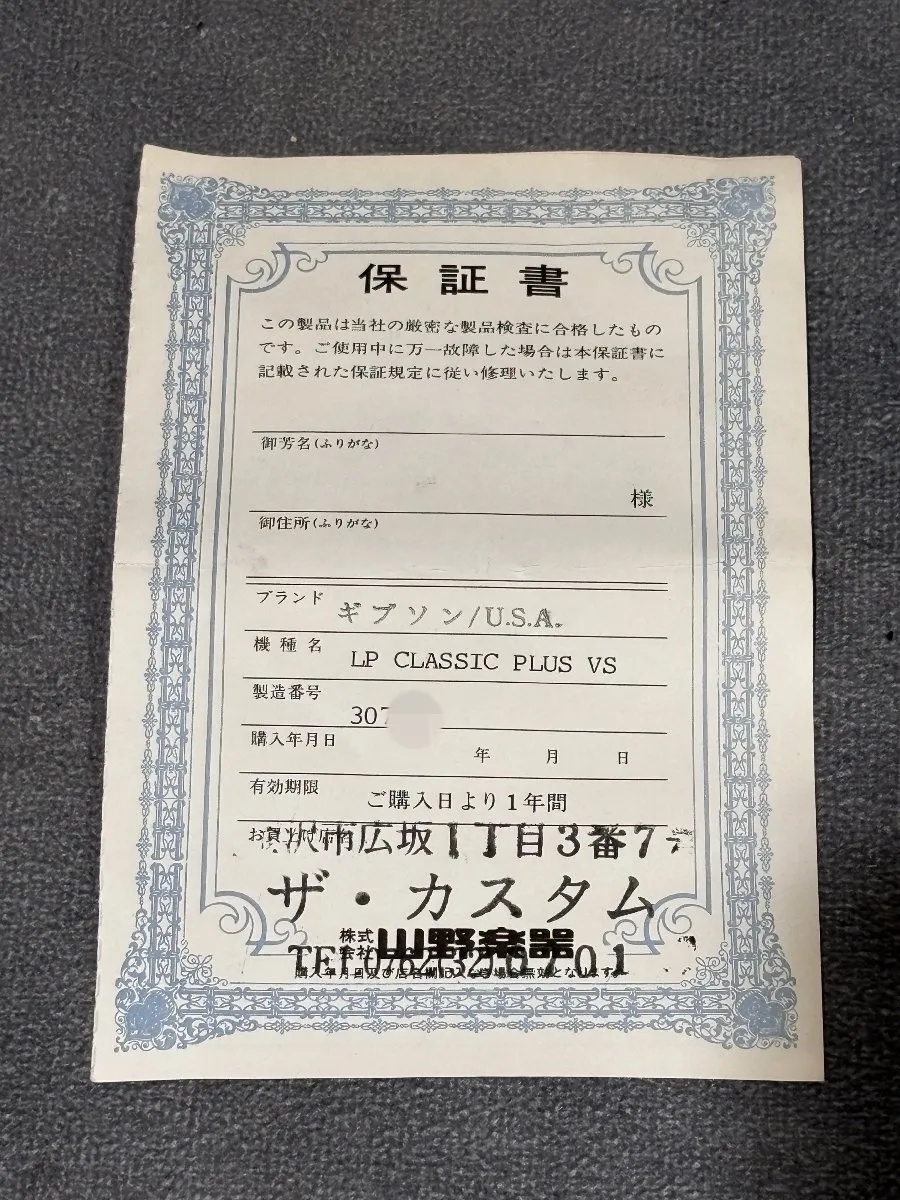 保証書
この製品は当社の厳密な製品検査に合格したもの
です。ご使用中に万一故障した場合は本保証書に
記載された保証規定に従い修理いたします。
御芳名(ふりがな)
様
御住所(ふりがな)
ブランド ギブソン/U.S.A.
機種名 LP CLASSIC PLUS VS
製造番号 307
購入年月日 年 月 日
有効期限 ご購入日より1年間
お買上げ店名
沢市広坂1丁目3番7
ザ・カスタム
株式会社 山野楽器
TEL
購入年月日及び店名欄記入なき場合無効となります。